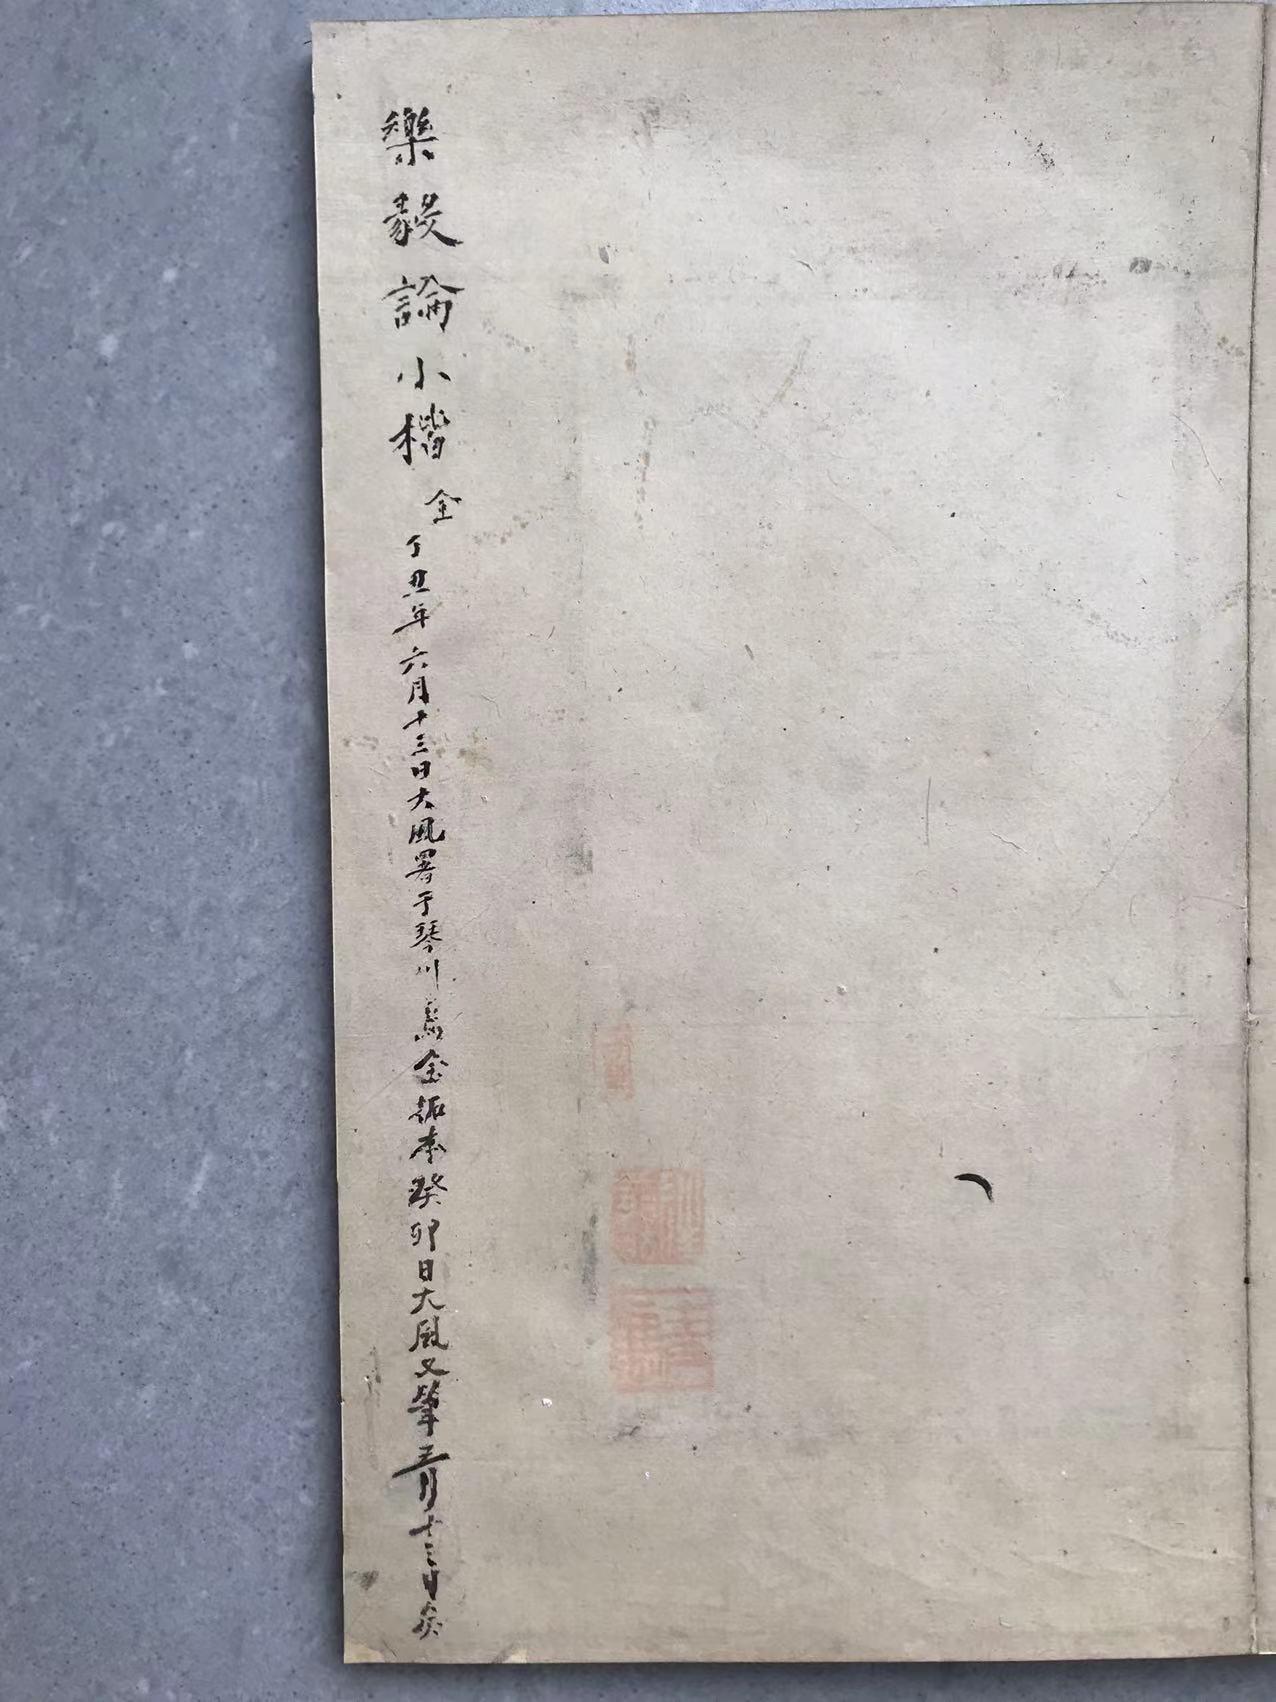 樂毅論小楷 全 丁丑年六月十三日大風署于琴川 烏金拓本癸卯日大風又筆 三月十三日矣